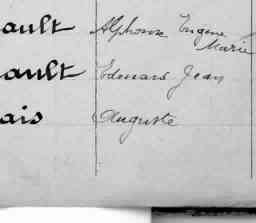 ault Alphonse Eugène
Marie
ault Edouard Jean
ais Auguste